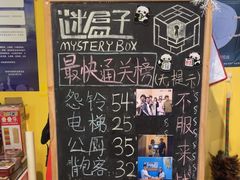 谜盒子
MYSTERY BOX
最快通关榜(无提示)
怨铃 54
电梯 25
公厕 35
背包客 32
不服来